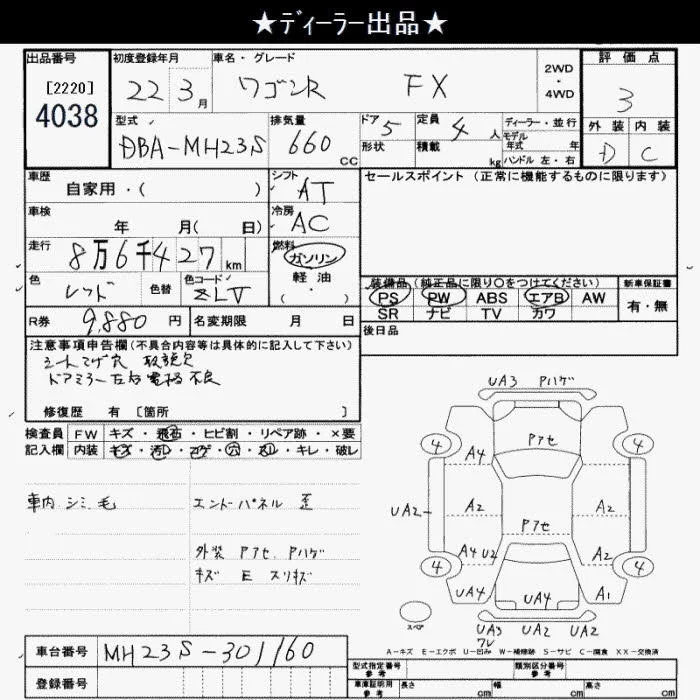 ★ディーラー出品★
出品番号
[2220]
4038
初度登録年月
22 3月
車名・グレード
ワゴンR FX
2WD・4WD
評価点
3
外装 内装
D C
型式
DBA-MH23S
排気量
660 CC
ドア 5
形状
定員 4 人
積載 kg
ディーラー・並行
モデル年式 年
ハンドル 左・右
車歴
自家用・( )
シフト
AT
セールスポイント(正常に機能するものに限ります)
車検
年 月( 日)
冷房
AC
走行
8万6千427 km
燃料
ガソリン
軽油
( ・ )
色
レッド
色替
色コード
ZLV
装備品(純正品に限り○をつけてください)
PS PW ABS エアB AW
SR ナビ TV カワ
新車保証書
有・無
R券
9,880 円
名変期限 月 日
後日品
注意事項申告欄(不具合内容等は具体的に記入して下さい)
シートコゲ穴 取説欠
ドアミラー左右電格不良
修復歴 有 [箇所 ]
検査員記入欄
FW キズ・飛石・ヒビ割・リペア跡・×要
内装 キズ・汚レ・コゲ・穴・スレ・キレ・破レ
車内 シミ、毛
エンドパネル 歪
外装 Pアセ、Pハゲ
キズ E スリキズ
UA3 Pハゲ
4 4
Pアセ
A4
UA2 A2 A2
Pアセ
A4 U2 A2
4 4
UA4 UA4 A1
スペア
UA3 UA2 UA2
ワレ
A-キズ E-エクボ U-凹み W-補修跡 S-サビ C-腐食 XX-交換済
車台番号
MH23S-301160
登録番号
型式指定番号 参考
類別区分番号 参考
車庫証明用 参考
長さ cm 幅 cm 高さ cm